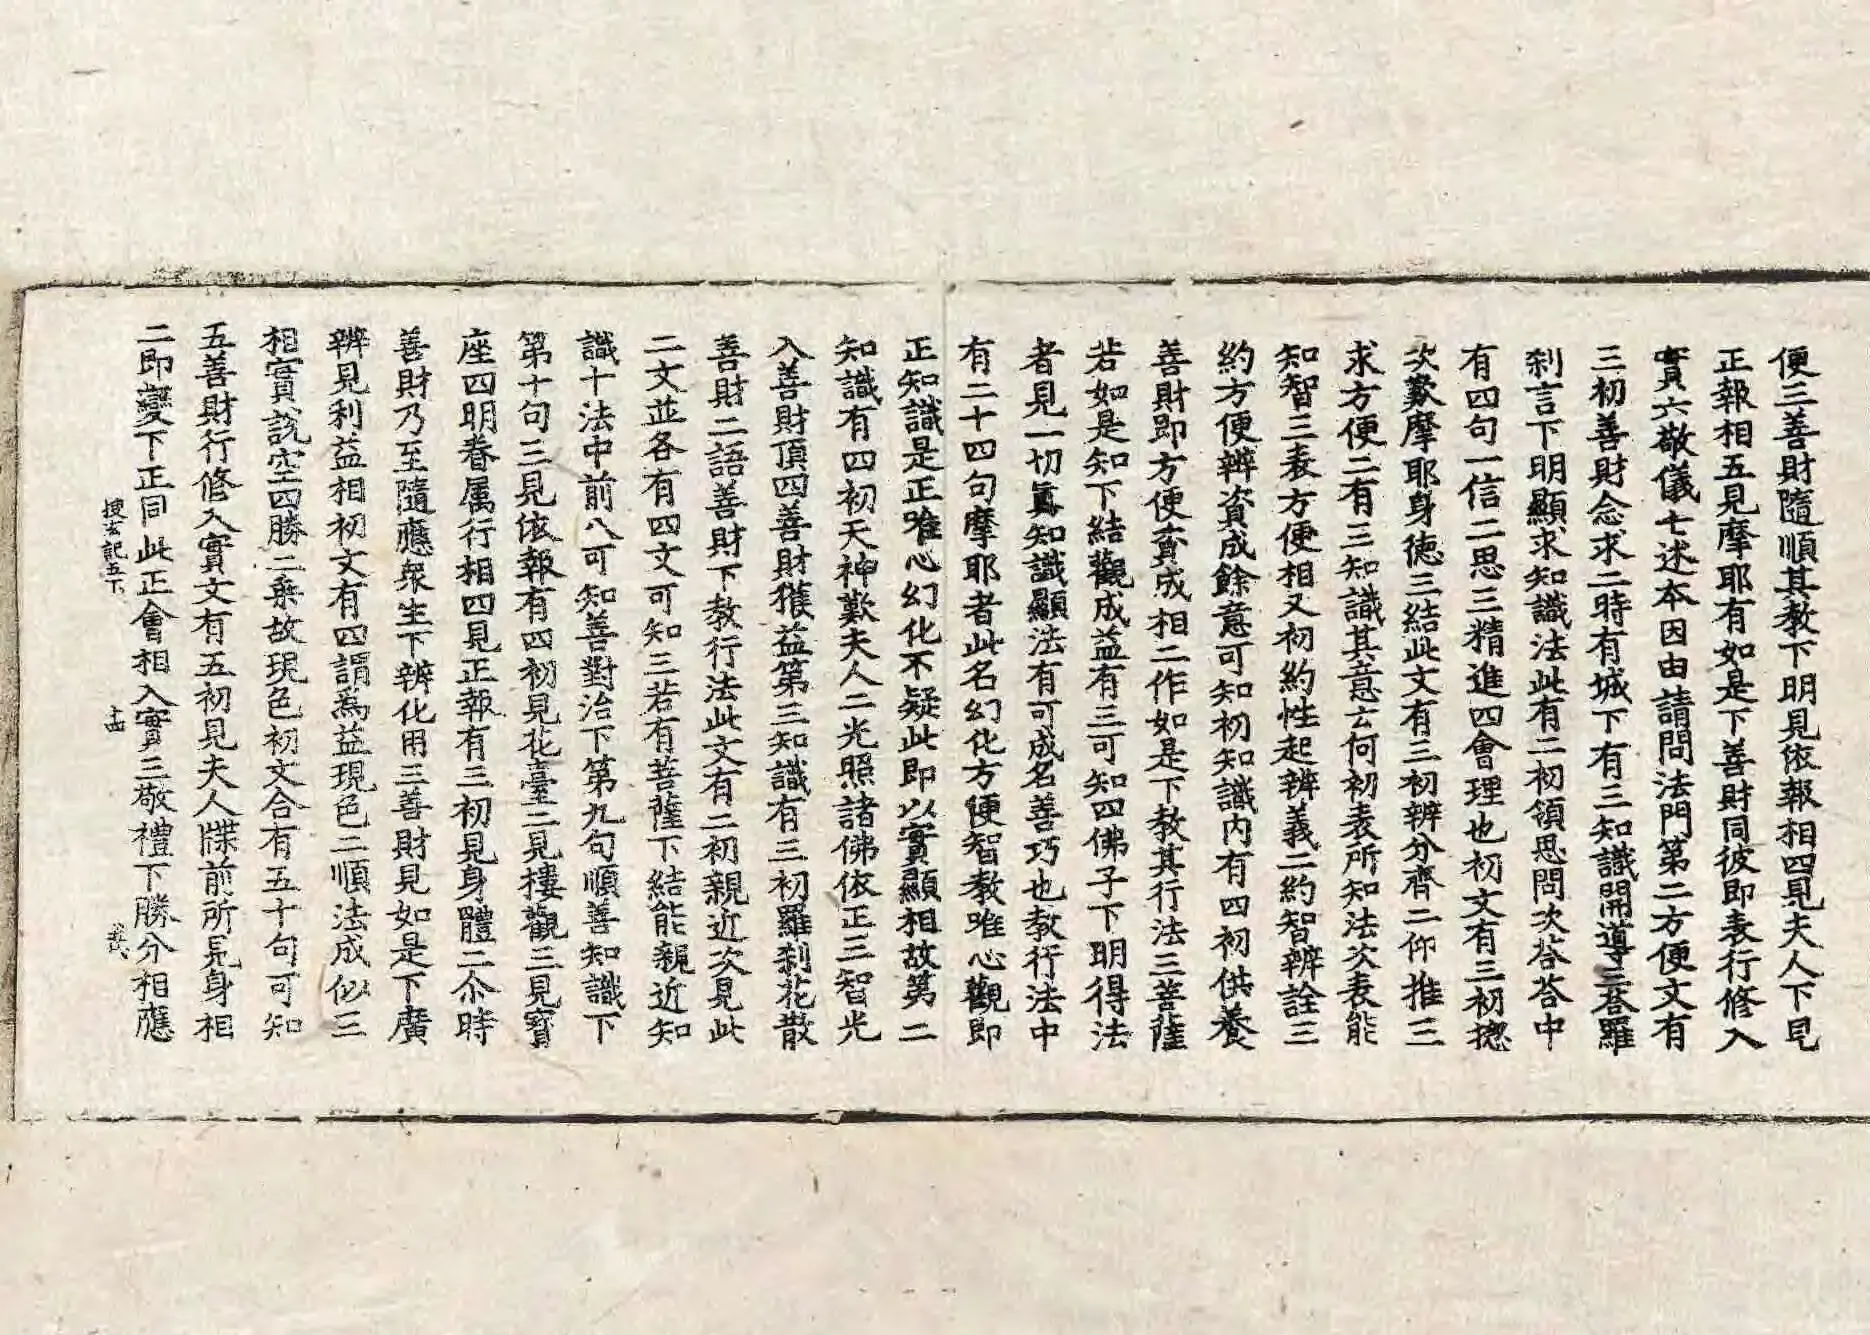 便三善財隨順其教下明見依報相四見夫人下見
正報相五見摩耶有如是下善財同彼即表行修入
實六敬儀七述本因由請問法門第二方便文有
三初善財念求二時有城下有三知識開導三荅羅
刹言下明顯求知識法此有二初領思問次荅荅中
有四句一信二思三精進四會理也初文有三初揔
次歎摩耶身德三結此文有三初辨分齊二仰推三
求方便二有三知識其意云何初表所知法次表能
知智三表方便相又初約性起辨義二約智辨詮三
約方便辨資成餘意可知初知識內有四初供養
善財即方便資成相二作如是下教其行法三菩薩
若如是知下結觀成益有三可知四佛子下明得法
者見一切眞知識顯法有可成名善巧也教行法中
有二十四句摩耶者此名幻化方便智教唯心觀即
正知識是正唯心幻化不疑此即以實顯相故第二
知識有四初天神歎夫人二光照諸佛依正三智光
入善財頂四善財獲益第三知識有三初羅刹花散
善財二語善財下教行法此文有二初親近次見此
二文並各有四文可知三若有菩薩下結能親近知
識十法中前八可知善對治下第九句順善知識下
第十句三見依報有四初見花臺二見樓觀三見寶
座四明眷属行相四見正報有三初見身體二尒時
善財乃至隨應衆生下辨化用三善財見如是下廣
辨見利益相初文有四謂爲益現色二順法成似三
相實說空四勝二乘故現色初文合有五十句可知
五善財行修入實文有五初見夫人牒前所見身相
二即變下正同此正會相入實三敬禮下勝分相應
搜玄記五下 十四